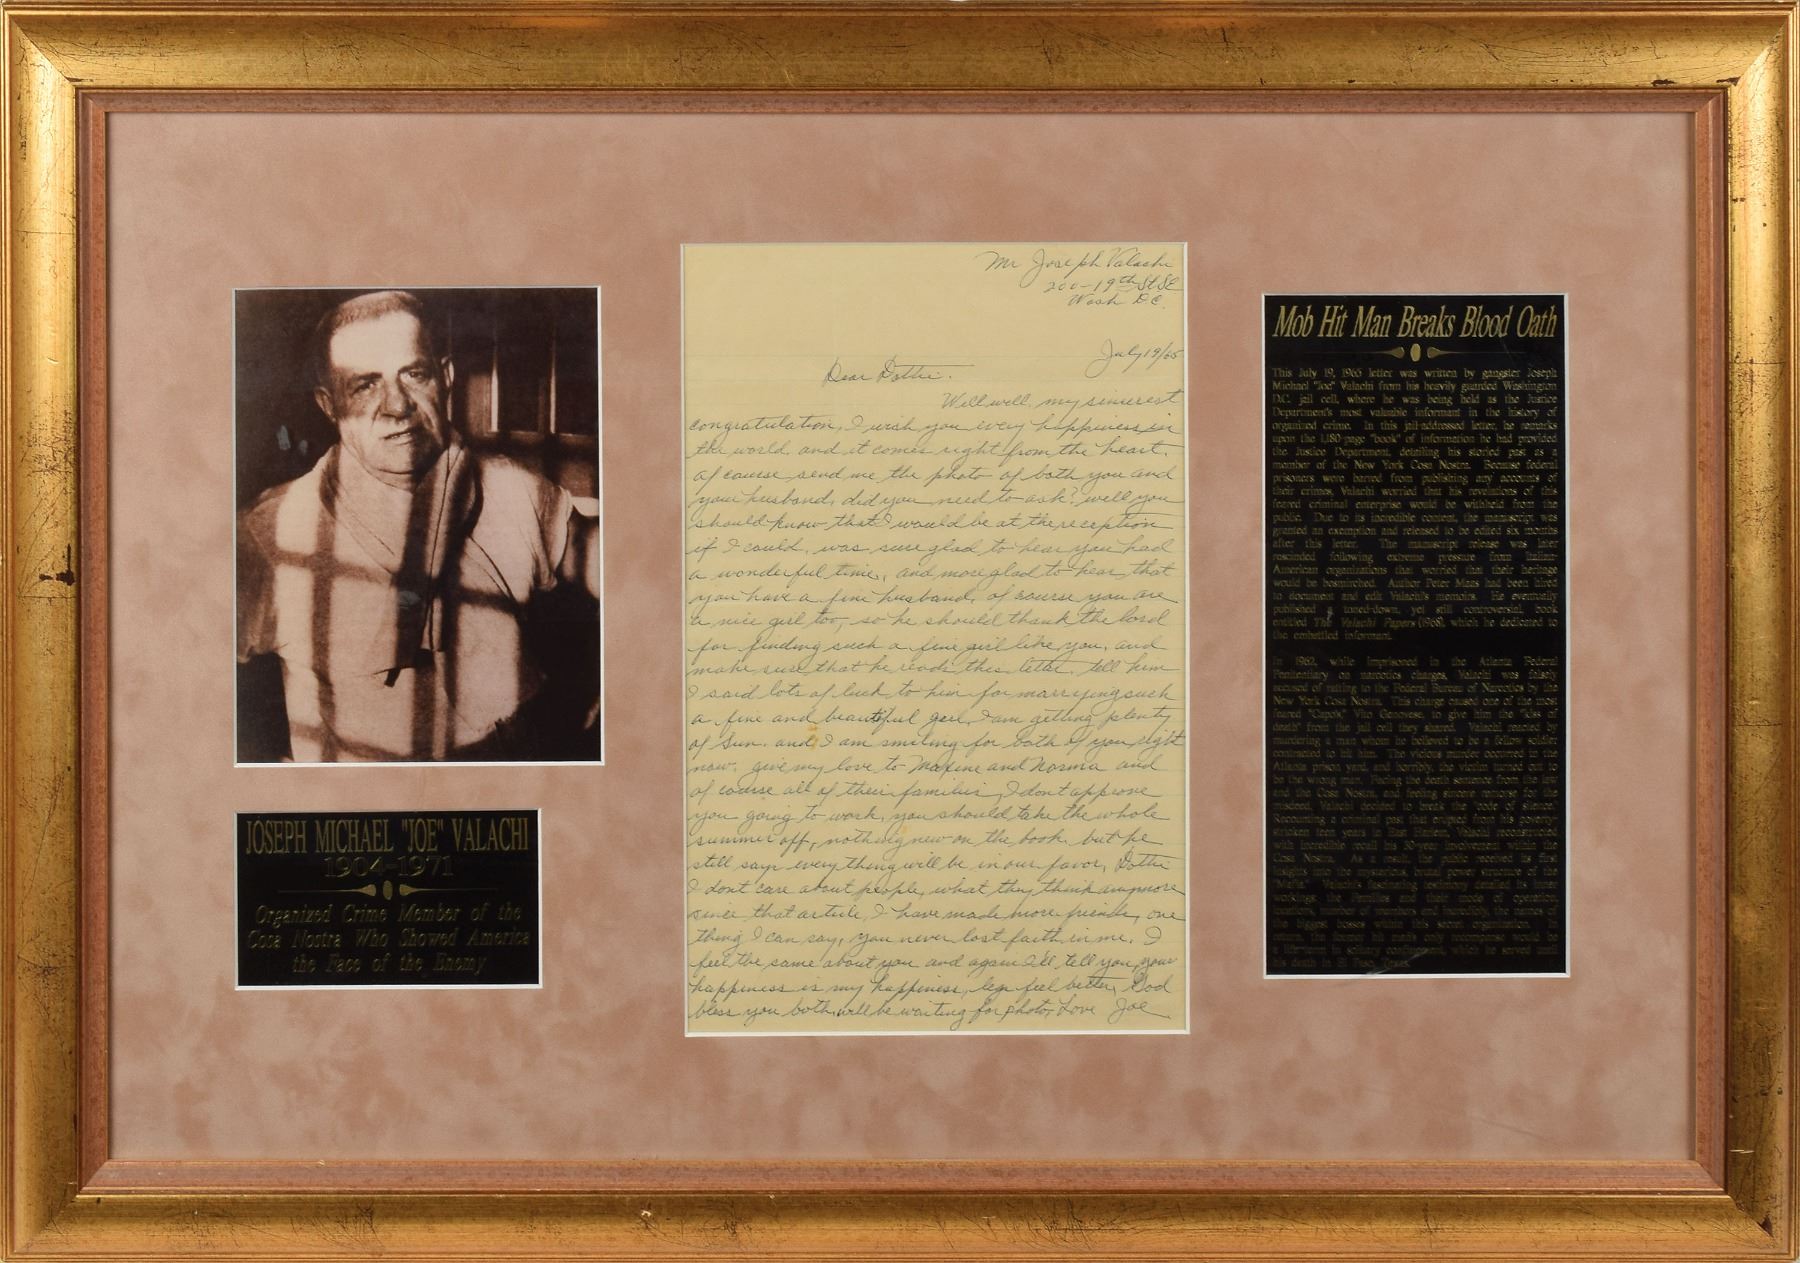 JOSEPH MICHAEL "JOE" VALACHI
1904-1971
Organized Crime Member of the
Cosa Nostra Who Showed America
the Face of the Enemy
Mr Joseph Valachi
200-19th St SE
Wash D.C.
July 19/65
Dear Dottie.
Well well, my sincerest
congratulation, I wish you every happiness in
the world, and it comes right from the heart.
of course send me the photo of both you and
your husband, did you need to ask? well you
should know that I would be at the reception
if I could, was sure glad to hear you had
a wonderful time, and more glad to hear that
you have a fine husband, of course you are
a nice girl too, so he should thank the lord
for finding such a fine girl like you, and
make sure that he reads this letter, tell him
I said lots of luck to him for marrying such
a fine and beautiful girl, I am getting plenty
of sun, and I am smiling for both of you right
now, give my love to Maxine and Norma and
of course all of their families, I dont approve
you going to work, you should take the whole
summer off, nothing new on the book, but he
still says every thing will be in our favor, Dottie
I dont care about people, what they think anymore
since that article, I have made more friends, one
thing I can say, you never lost faith in me, I
feel the same about you and again I'll tell you, your
happiness is my happiness, legs feel better, God
bless you both, will be waiting for photo, Love Joe
Mob Hit Man Breaks Blood Oath
This July 19, 1965 letter was written by gangster Joseph
Michael "Joe" Valachi from his heavily guarded Washington
D.C. jail cell, where he was being held as the Justice
Department's most valuable informant in the history of
organized crime. In this jail-addressed letter, he remarks
upon the 1,180-page "book" of information he had provided
the Justice Department, detailing his storied past as a
member of the New York Cosa Nostra. Because federal
prisoners were barred from publishing any accounts of
their crimes, Valachi worried that his revelations of this
feared criminal enterprise would be withheld from the
public. Due to its incredible content, the manuscript was
granted an exemption and released to be edited six months
after this letter. The manuscript release was later
rescinded following extreme pressure from Italian-
American organizations that worried that their heritage
would be besmirched. Author Peter Maas had been hired
to document and edit Valachi's memoirs. He eventually
published a toned-down, yet still controversial, book
entitled The Valachi Papers (1968), which he dedicated to
the embattled informant.
In 1962, while imprisoned in the Atlanta Federal
Penitentiary on narcotics charges, Valachi was falsely
accused of ratting to the Federal Bureau of Narcotics by the
New York Cosa Nostra. This charge caused one of the most
feared "Capo's," Vito Genovese, to give him the "kiss of
death" from the jail cell they shared. Valachi reacted by
murdering a man whom he believed to be a fellow soldier
contracted to kill him. The vicious assault occurred in the
Atlanta prison yard, and horribly, the victim turned out to
be the wrong man. Facing the death sentence from the law
and the Cosa Nostra, and feeling sincere remorse for the
misdeed, Valachi decided to break the "code of silence."
Recounting a criminal past that erupted from his poverty-
stricken teen years in East Harlem, Valachi reconstructed
with incredible recall his 30-year involvement within the
Cosa Nostra. As a result, the public received its first
insights into the mysterious, brutal power structure of the
"Mafia." Valachi's fascinating testimony detailed its inner
workings, the Families and their mode of operation,
locations, number of members and incredibly, the names of
the biggest bosses within this secret organization. In
the former hit man's only recompense would be
a life-term in solitary confinement, which he served until
his death in El Paso, Texas.